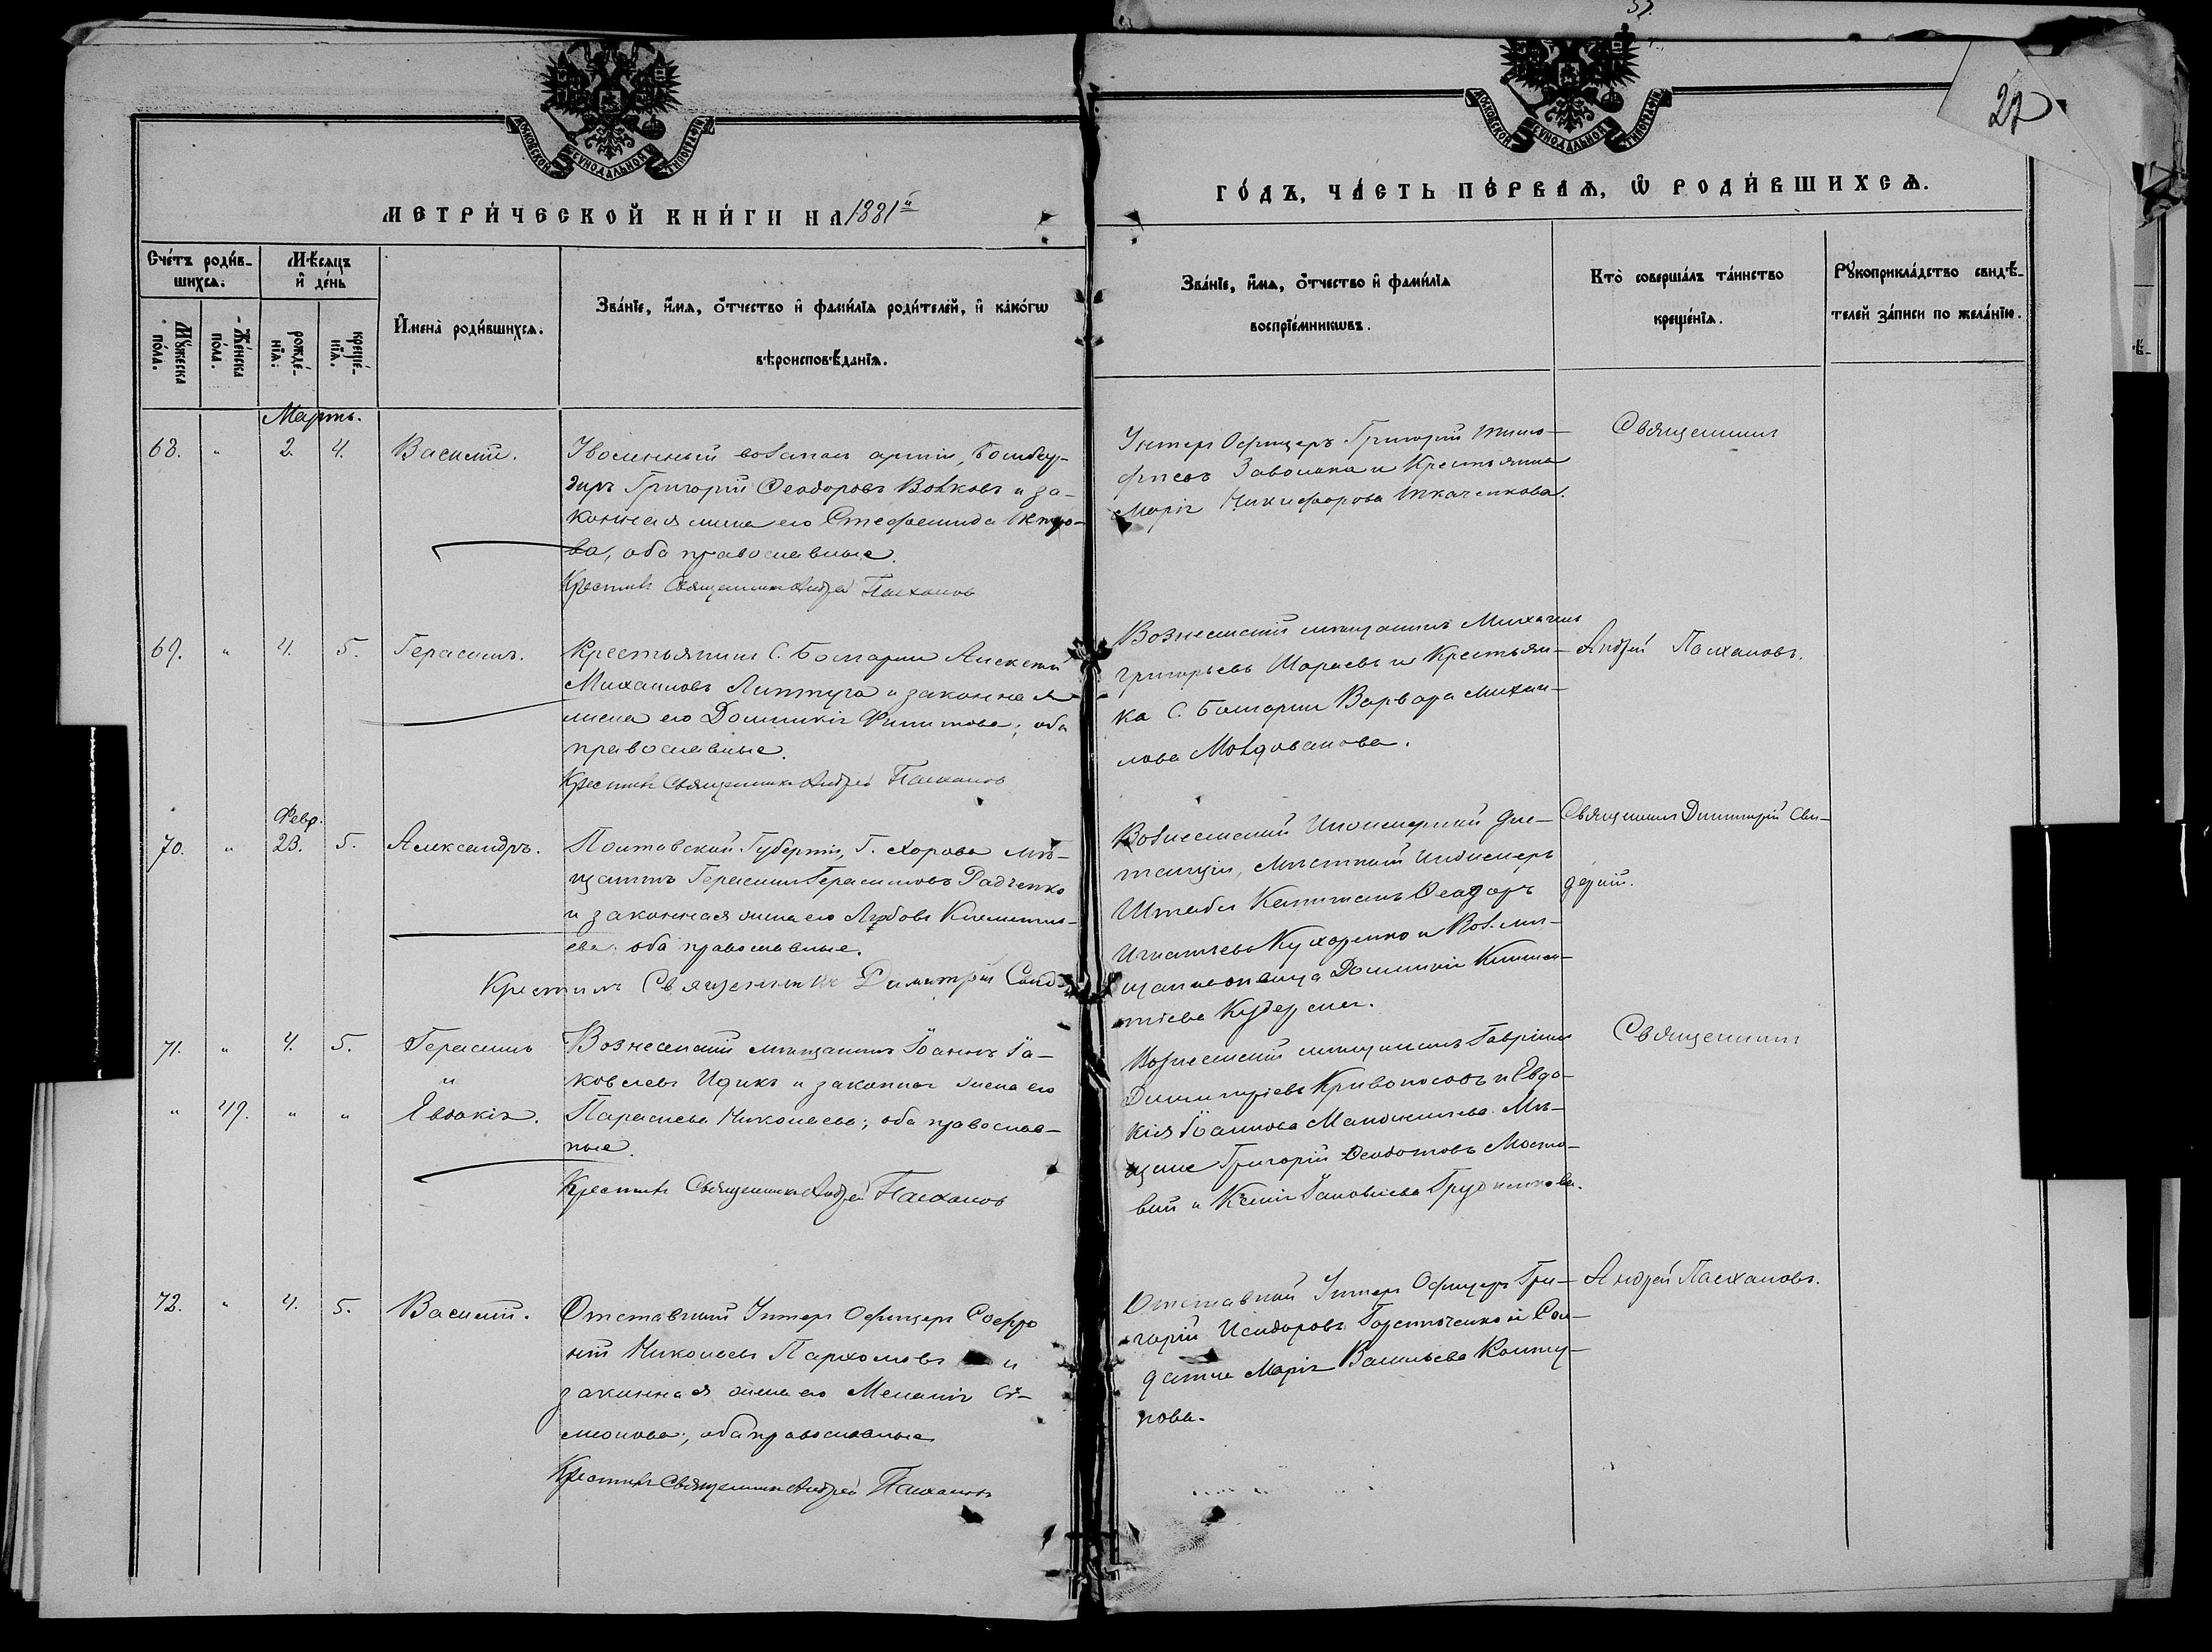 22
МЕТРИ́ЧЕСКОЙ КНИ́ГИ НА 1881й
ГО́ДЪ, ЧА́СТЬ ПЕ́РВАѦ, Ѡ҆ РОДИ́ВШИХСѦ.
Сче́тъ роди́в-
шихсѧ.
Мѣ́сяцъ
и҆ де́нь
Мꙋ́жеска
по́ла.
Же́нска
по́ла.
рожде́-
нїѧ.
креще́-
нїѧ.
И҆мена̀ роди́вшихсѧ.
Зва́нїе, и҆́мѧ, ѻ҆́тчество и҆ фами́лїѧ роди́телей, и҆ како́гѡ
вѣроисповѣ́данїѧ.
Зва́нїе, и҆́мѧ, ѻ҆́тчество и҆ фами́лїѧ
воспрїе́мникѡвъ.
Кто̀ соверша́лъ та́инство
креще́нїѧ.
Рꙋкоприкла́дство свидѣ́-
телей за́писи по жела́нїю.
Мартъ.
68. " 2. 4. Василій.
Уволенный въ запас арміи, Бомбар-
диръ Григорій Ѳеодоровъ Волковъ и за-
конная жена его Стефанида
ва, оба православные.
Крестилъ Священникъ Андрей Пасхаловъ
Унтеръ Офицеръ Григорій Тимо-
фѣевъ Заволока и Крестьянка
Марія Никифорова Ткаченкова.
Священникъ
69. " 4. 5. Герасимъ.
Крестьянинъ С. Болгарки Алексѣй
Михаиловъ Липтуга и законная
жена его Домникія Филипова; оба
православные.
Крестилъ Священникъ Андрей Пасхаловъ
Вознесенскій мѣщанинъ Михаилъ
Григорьевъ Шараевъ и Крестьян-
ка С. Болгарки Варвара Михаи-
лова Молдованова.
Андрей Пасхаловъ.
Февр.
70. " 23. 5. Александръ.
Полтавской Губерніи, Г. Хорола мѣ-
щанинъ Герасимъ Герасимовъ Радченко
и законная жена его Любовь Климентіе-
ева; оба православные.
Крестилъ Священникъ Димитрій
Вознесенской Инженерной дис-
танціи, Мѣстный Инженеръ
Штабсъ Капитанъ Ѳеодоръ
Игнатьевъ Кухаренко и Воз. мѣ-
щанская вдова Домникія Климен-
тіева
Священникъ Димитрій Сви-
дерскій.
71. " 4. 5. Герасимъ
и
" 49. " " Евдокія.
Вознесенскій мѣщанинъ Іоаннъ Іа-
ковлевъ Ицикъ и законная жена его
Параскева Николаева; оба православ-
ные.
Крестилъ Священникъ Андрей Пасхаловъ
Вознесенскій мѣщанинъ Гавріилъ
Димитріевъ Кривоносовъ и Евдо-
кія Іоаннова Мѣ-
щане Григорій Ѳеодотовъ Мосто-
вый и Ксенія Іаковлева
Священникъ
72. " 4. 5. Василій.
Отставный Унтеръ Офицеръ Софро-
ній Николаевъ Пархомовъ и
законная жена его Меланія Си-
меонова; оба православные
Крестилъ Священникъ Андрей Пасхаловъ
Отставной Унтеръ Офицеръ Гри-
горій Исидоровъ и Сол-
датка Марія Васильева Колту-
нова.
Андрей Пасхаловъ.